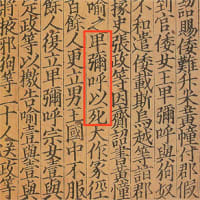 詔賜倭難升米黃幢付郡假
到官倭女王卑彌呼與狗奴
不和遣倭載斯烏越等詣郡
掾史張政等因齎詔書黃幢
喻之卑彌呼以死大作冢徑
百餘人更立男王國中不服
餘人復立卑彌呼宗女壹與
定政等以檄告喻壹與壹與
將掖邪狗等二十人送政等